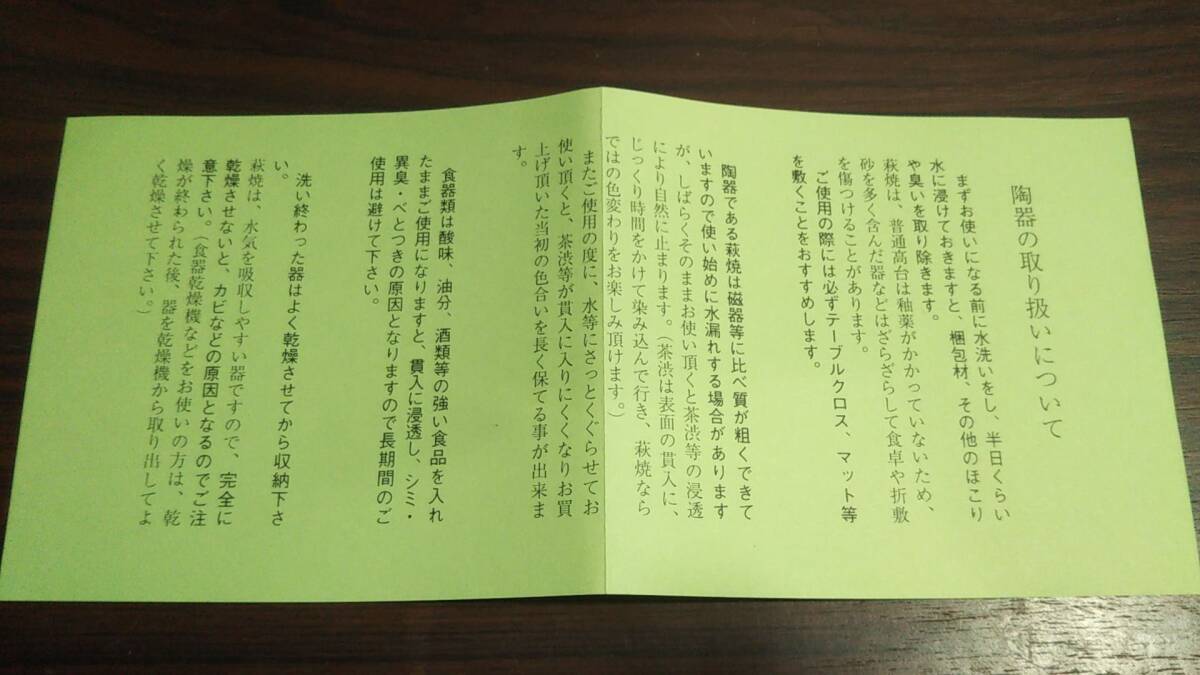 陶器の取り扱いについて
まずお使いになる前に水洗いをし、半日くらい
水に浸けておきますと、梱包材、その他のほこり
や臭いを取り除きます。
萩焼は、普通高台は釉薬がかかっていないため、
砂を多く含んだ器などはざらざらして食卓や折敷
を傷つけることがあります。
ご使用の際には必ずテーブルクロス、マット等
を敷くことをおすすめします。
陶器である萩焼は磁器等に比べ質が粗くできて
いますので使い始めに水漏れする場合があります
が、しばらくそのままお使い頂くと茶渋等の浸透
により自然に止まります。（茶渋は表面の貫入に、
じっくり時間をかけて染み込んで行き、萩焼なら
ではの色変わりをお楽しみ頂けます。）
またご使用の度に、水等にさっとくぐらせてお
使い頂くと、茶渋等が貫入に入りにくくなりお買
上げ頂いた当初の色合いを長く保てる事が出来ま
す。
食器類は酸味、油分、酒類等の強い食品を入れ
たままご使用になりますと、貫入に浸透し、シミ・
異臭・べとつきの原因となりますので長期間のご
使用は避けて下さい。
洗い終わった器はよく乾燥させてから収納下さ
い。
萩焼は、水気を吸収しやすい器ですので、完全に
乾燥させないと、カビなどの原因となるのでご注
意下さい。（食器乾燥機などをお使いの方は、乾
燥が終わられた後、器を乾燥機から取り出してよ
く乾燥させて下さい。）